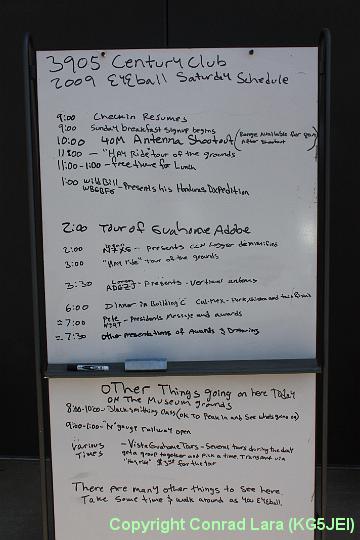 3905 Century Club
2009 EYEball Saturday Schedule
9:00 Checkin Resumes
9:00 Sunday breakfast signup begins
10:00 40M Antenna Shootout (Range Available for open
After Shootout)
11:00 - "Hay Ride" tour of the grounds
11:00-1:00 - free time for Lunch
1:00 Wild Bill
WB6BFG - Presents his Honduras Dxpedition
2:00 Tour of Guahome Adobe
2:00 - Presents Logger demistified
3:00 "Hay ride" tour of the grounds
3:30 - Presents - Vertical antennas
6:00 Dinner in Building C Cal-Mex - Pork,
≈ 7:00 Pete - Presidents Message and awards
≈ 7:30 other presentations of Awards & Drawing
OTher Things going on here Today
ON The Museum grounds
8:00-10:00 - Blacksmithing Class (OK TO Peak in and see whats going on)
9:00-1:00 - "N" gauge Railway open
Various - Vista Guahome Tours - Several tours during the day
Times get a group together and pick a time. Transport via
"Hay ride" for the tour
There are many other things to see here.
Take some time & walk around as you EYEball.
Copyright Conrad Lara (KG5JEI)